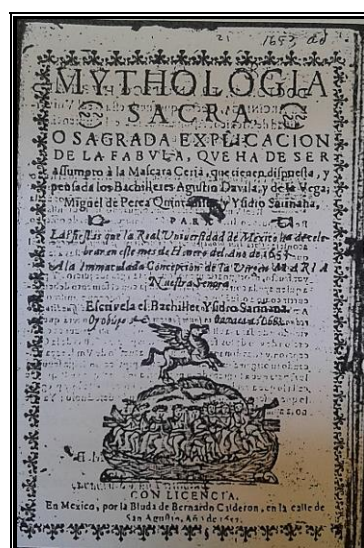 21 1653
MYTHOLOGIA
SACRA
O SAGRADA EXPLICACION
DE LA FABVLA, QVE HA DE SER
assumpto à la Mascara Ceria, que tienen dispuesta, y
pensada los Bachilleres Agustin Davila, y de la Vega,
Miguel de Perea Quintanilla, y Ysidro Sariñana,
PARA
Las fiestas que la Real Universidad de Mexico ha de cele-
brar en este mes de Henero del Año de 1653
A la Immaculada Concepcion de la Virgen MARIA
Nuestra Señora
Escrivela el Bachiller Ysidro Sariñana.
CON LICENCIA.
En Mexico, por la Biuda de Bernardo Calderon, en la calle de
San Agustin, Año de 1653.